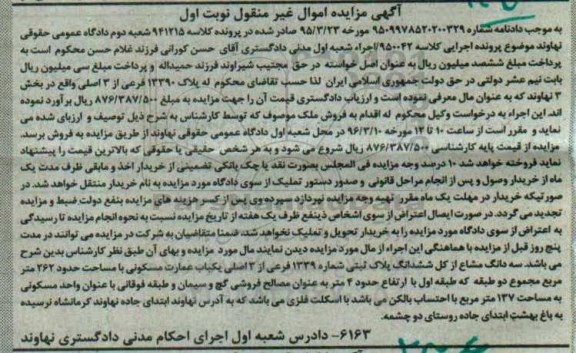 آگهی مزایده اموال غیر منقول نوبت اول
به موجب دادنامه شماره ۹۵۰۹۹۷۸۵۲۰۲۰۰۳۲۹ مورخه ۹۵/۳/۲۳ صادر شده در پرونده کلاسه ۹۴۱۲۱۵ شعبه دوم دادگاه عمومی حقوقی
نهاوند موضوع پرونده اجرایی کلاسه ۹۵۰۰۴۲/اجراء شعبه اول مدنی دادگستری آقای حسن کورانی فرزند غلام حسن محکوم است به
پرداخت مبلغ ششصد میلیون ریال به عنوان اصل خواسته در حق مجتبی شیراوند فرزند حمیداله و پرداخت مبلغ سی میلیون ریال
بابت نیم عشر دولتی در حق دولت جمهوری اسلامی ایران لذا حسب تقاضای محکوم له پلاک ۱۳۳۹۰ فرعی از ۳ اصلی واقع در بخش
۳ نهاوند که به عنوان مال معرفی نموده است و ارزیاب دادگستری قیمت آن را جهت مزایده به مبلغ ۸۷۶/۳۸۷/۵۰۰ ریال برآورد نموده
اند. این اجراء به درخواست وکیل محکوم له اقدام به فروش ملک موصوف که توسط کارشناس به شرح ذیل توصیف و ارزبای شده می
نماید و مقرر است از ساعت ۱۰ تا ۱۲ مورخه ۹۶/۳/۱۰ در محل شعبه اول دادگاه عمومی حقوقی نهاوند از طریق مزایده به فروش برسد.
مزایده از قیمت پایه کارشناسی ۸۷۶/۳۸۷/۵۰۰ ریال شروع می شود و به هر شخص حقیقی یا حقوقی که بالاترین قیمت را پیشنهاد
نماید فروخته خواهد شد. ۱۰ درصد وجه مزایده فی المجلس بصورت نقد یا چک بانکی تضمینی از خریدار اخذ و مابقی ظرف مدت یک
ماه از خریدار وصول و پس از انجام مراحل قانونی و صدور دستور تملیک از سوی دادگاه مورد مزایده به نام خریدار منتقل خواهد شد. در
صورتیکه خریدار در مهلت یک ماه مقرر بقیه وجه مزایده نپردازد سپرده وی پس از کسر هزینه های مزایده بنفع دولت ضبط و مزایده
تجدید می گردد. در صورت ایصال اعتراض از سوی اشخاص ذینفع ظرف یک هفته از تاریخ مزایده نسبت به نحوه انجام مزایده تا رسیدگی
به اعتراض از سوی دادگاه مورد مزایده را به خریدار تحویل و تملیک نخواهد شد. ضمنا متقاضیان به شرکت در مزایده می توانند در مدت
پنج روز قبل از مزایده با هماهنگی این اجراء از مال مورد مزایده دیدن نمایند مال مورد مزایده و بهای آن طبق نظر کارشناس بدین شرح
می باشد. سه دانگ مشاع از کل ششدانگ پلاک ثبتی شماره ۱۳۳۹ فرعی از ۳ اصلی یکباب عمارت مسکونی با مساحت حدود ۲۶۲ متر
مربع مجموع دو طبقه که طبقه اول با ارتفاع حدود ۳ متر به عنوان مصالح فروشی گچ و سیمان و طبقه فوقانی با عنوان واحد مسکونی
به مساحت ۱۳۷ متر مربع با احتساب بالکن می باشد با اسکلت فلزی می باشد که به آدرس نهاوند ابتدای جاده نهاوند کرمانشاه نرسیده
به باغ بهشت ابتدای جاده روستای دو چشمه.
۶۱۶۳- دادرس شعبه اول اجرای احکام مدنی دادگستری نهاوند